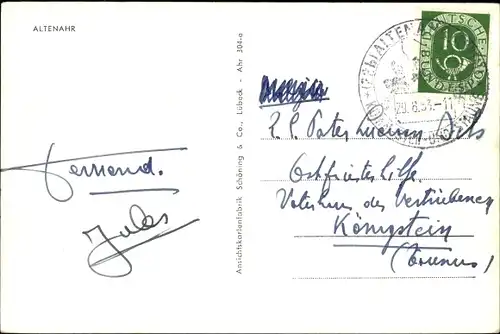 ALTENAHR
Ansichtskartenfabrik Schöning & Co., Lübeck · Ahr 304-a
DEUTSCHE BUNDESPOST
10
29.6.53.-11
Fernand.
Jules
Pater
Ostpriesterhilfe.
Vaterhaus der Vertriebenen
Königstein
(Taunus)